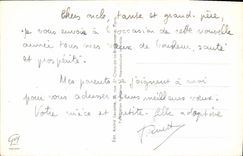 Chers oncle, tante et grand-père,
je vous envoie à l'occasion de cette nouvelle
année tous mes vœux de bonheur, santé
et prospérité.
Mes parents se joignent à moi
pour vous adresser leurs meilleurs vœux.
Votre nièce et petite-fille adoptive